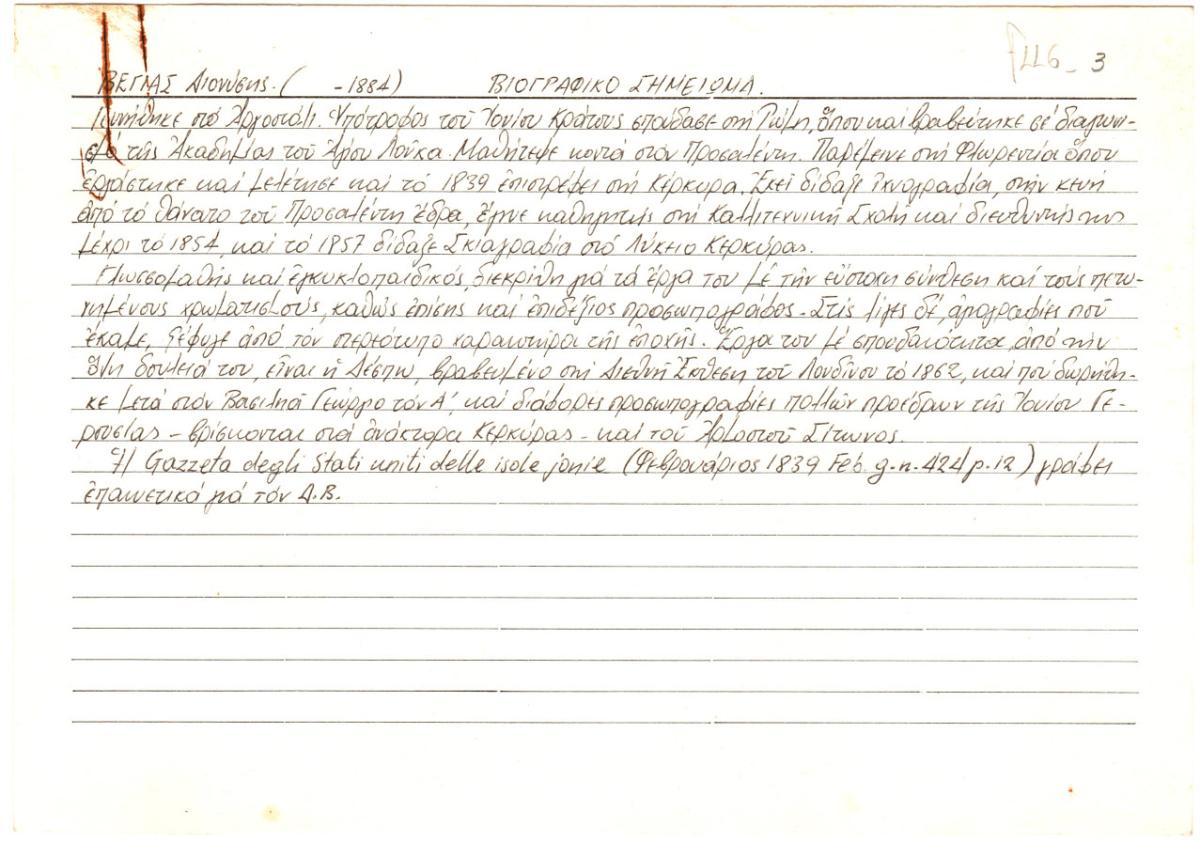 Γ116- 3
ΒΕΓΙΑΣ Διονύσης. ( -1884) ΒΙΟΓΡΑΦΙΚΟ ΣΗΜΕΙΩΜΑ.
Γεννήθηκε στό Ἀργοστόλι. Ὑπότροφος τοῦ Ἰονίου Κράτους σπούδασε στή Ρώμη, ὅπου καί βραβεύτηκε σέ διαγωνι-
σμό τῆς Ἀκαδημίας τοῦ Ἁγίου Λουκᾶ. Μαθήτεψε κοντά στόν Προσαλέντη. Παρέμεινε στή Φλωρεντία ὅπου
ἐργάστηκε καί μελέτησε καί τό 1839 ἐπιστρέφει στή Κέρκυρα. Ἐκεῖ δίδαξε ἰχνογραφία, στήν κενή
ἀπό τό θάνατο τοῦ Προσαλέντη ἕδρα, ἔγινε καθηγητής στή Καλλιτεχνική Σχολή καί διευθυντής της
μέχρι τό 1854, καί τό 1857 δίδαξε Σκιαγραφία στό Λύκειο Κερκύρας.
Γλωσσομαθής καί ἐγκυκλοπαιδικός, διεκρίθη γιά τά ἔργα του μέ τήν εὔστοχη σύνθεση καί τούς πετυ-
χημένους χρωματισμούς, καθώς ἐπίσης καί ἐπιδέξιος προσωπογράφος. Στίς λίγες δέ, ἁγιογραφίες πού
ἔκαμε, ξέφυγε ἀπό τόν στερεότυπο χαρακτήρα τῆς ἐποχῆς. Ἔργα του μέ σπουδαιότητα, ἀπό τήν
ὅλη δουλειά του, εἶναι ἡ Δέσπω, βραβευμένο στή Διεθνῆ Ἔκθεση τοῦ Λονδίνου τό 1862, καί πού δωρήθη-
κε μετά στόν Βασιληᾶ Γεώργιο τόν Α', καί διάφορες προσωπογραφίες πολλῶν προέδρων τῆς Ἰονίου Γε-
ρουσίας - βρίσκονται στά ἀνάκτορα Κερκύρας - καί τοῦ Ἁρμοστοῦ Σίτωνος.
Ἡ Gazzeta degli Stati uniti delle isole jonie (Φεβρουάριος 1839 Feb. g.n. 424/p.12) γράφει
ἐπαινετικά γιά τόν Δ.Β.